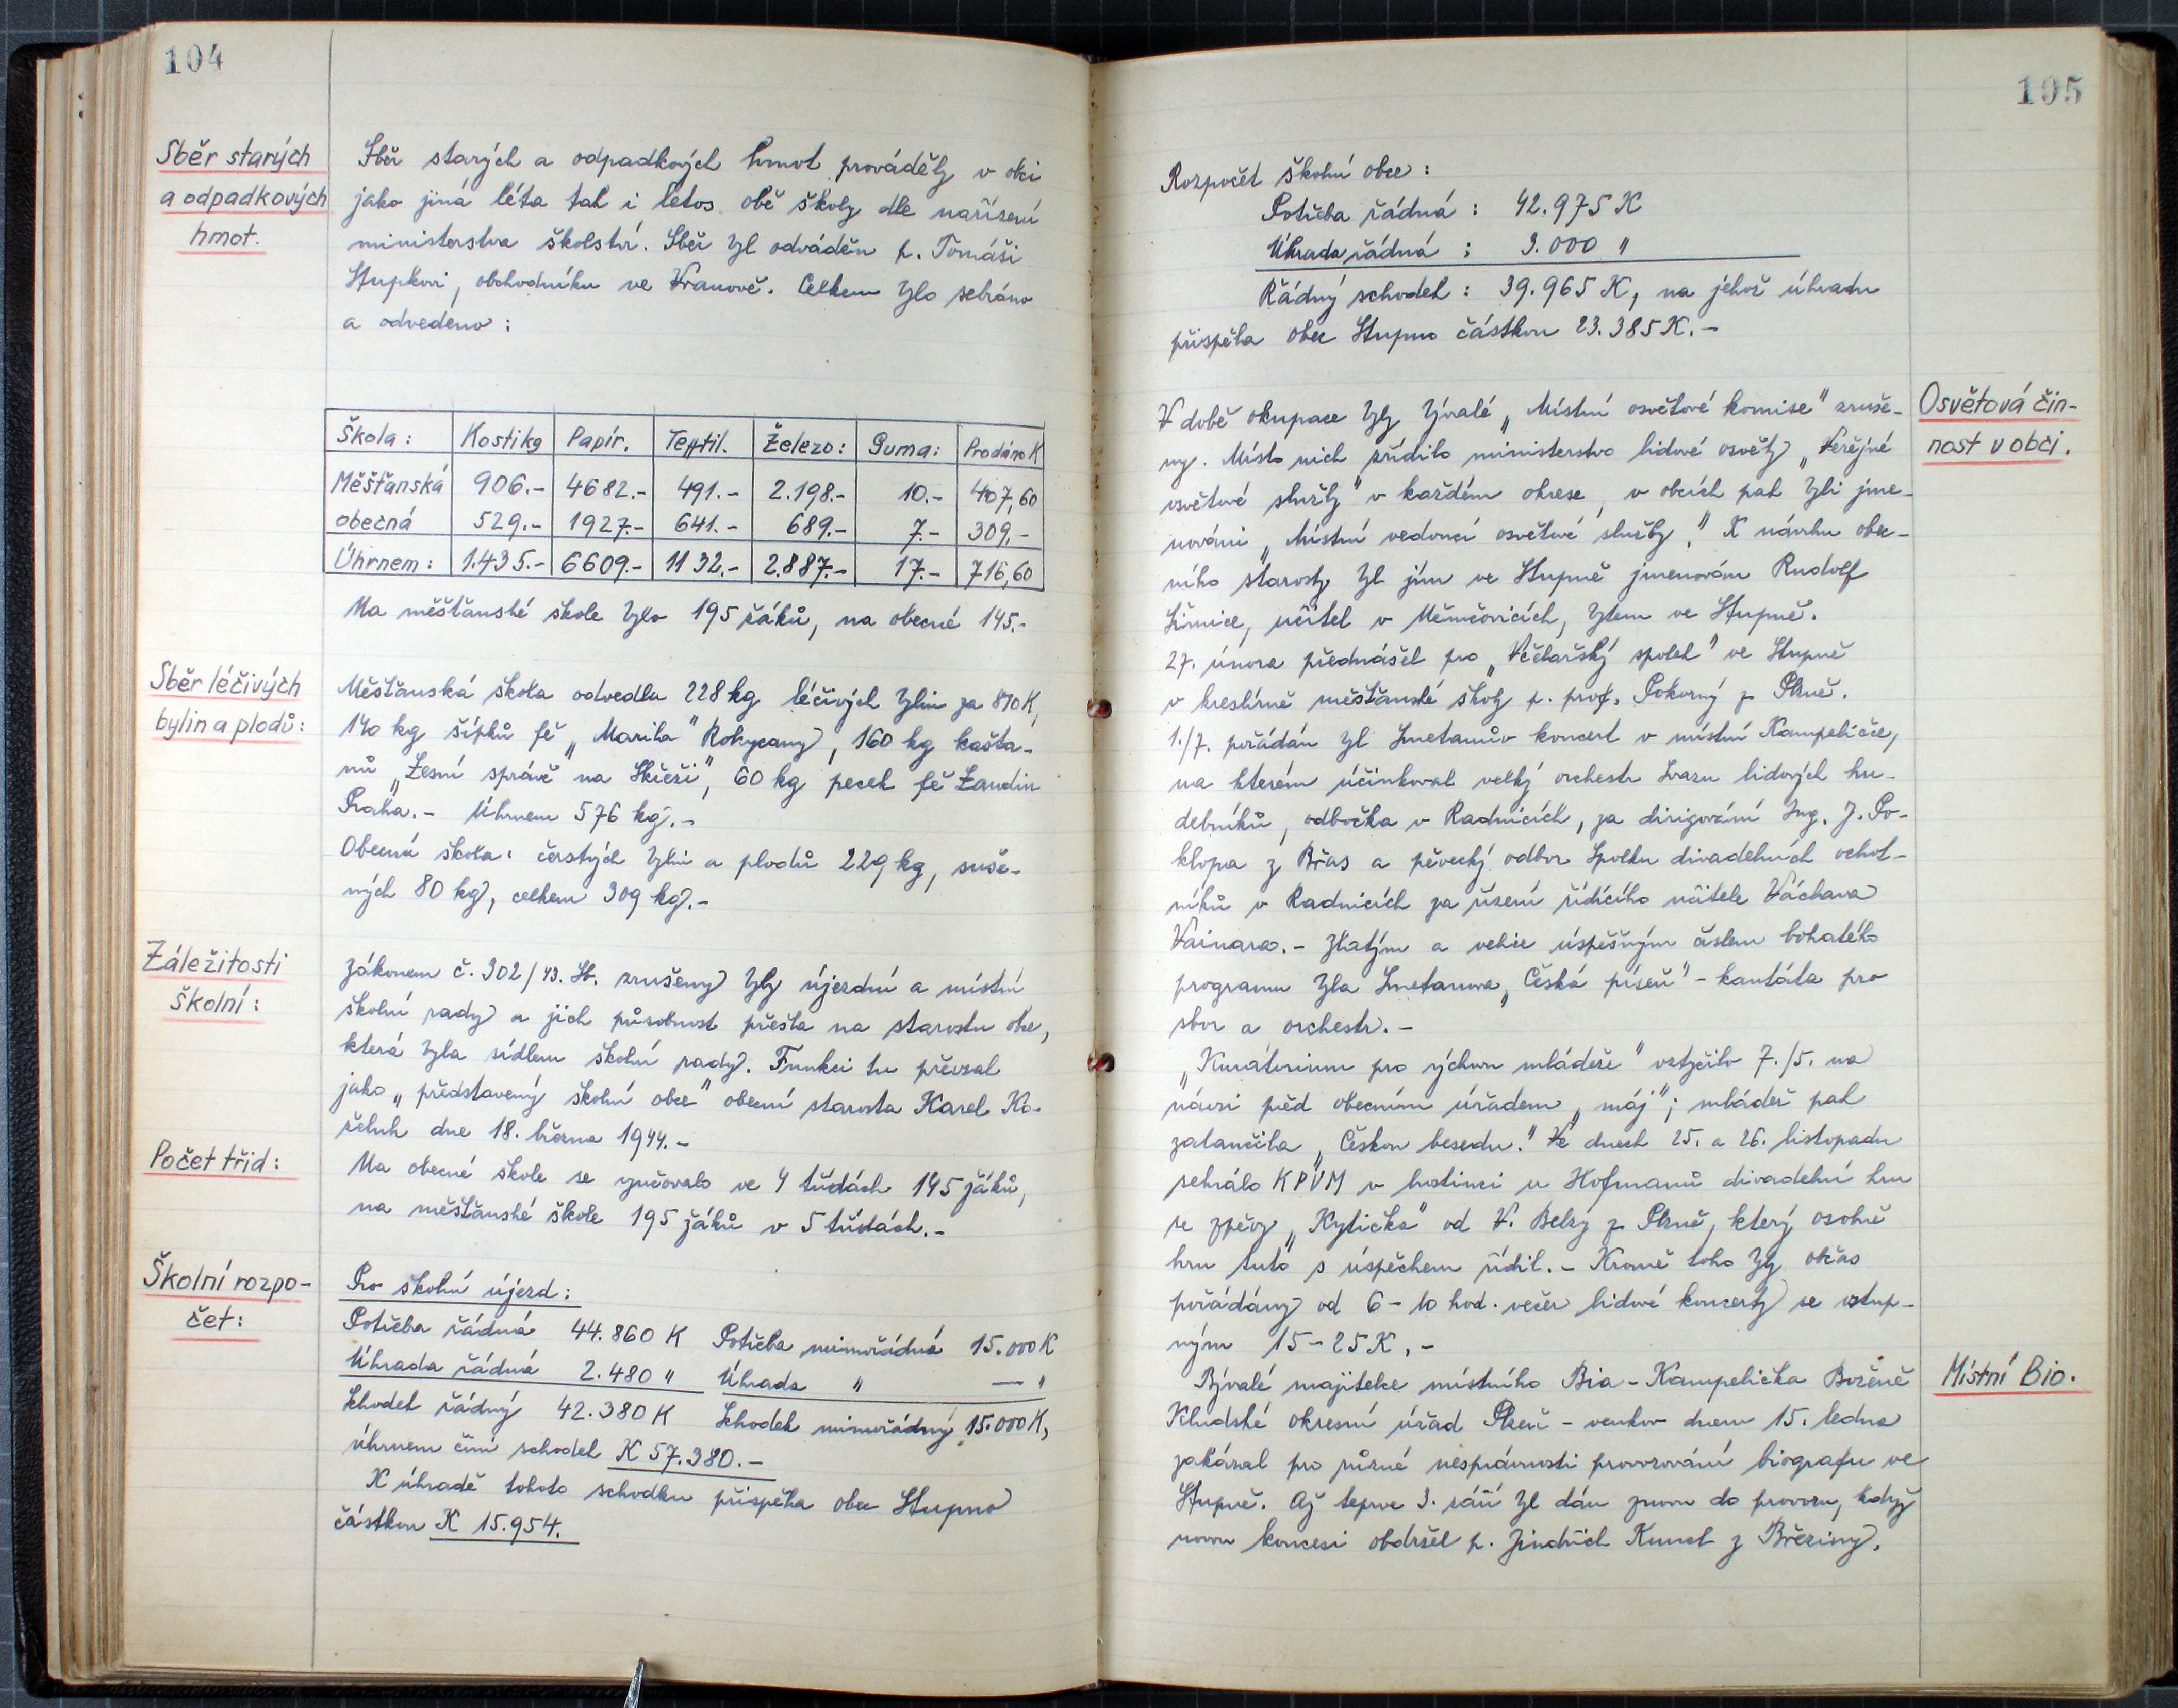 104
Sběr starých
a odpadkových
hmot.
Sběr starých a odpadkových hmot prováděly v obci
jako jiná léta tak i letos obě školy dle nařízení
ministerstva školství. Sběr byl odváděn p. Tomáši
Stupkovi, obchodníku ve Vranově. Celkem bylo sebráno
a odvedeno:
Škola: Kosti kg Papír. Textil. Železo: Guma: Prodáno K
Měšťanská 906.- 4682.- 491.- 2.198.- 10.- 407,60
obecná 529.- 1927.- 641.- 689.- 7.- 309.-
Úhrnem: 1.435.- 6609.- 1132.- 2.887.- 17.- 716,60
Na měšťanské škole bylo 195 žáků, na obecné 145.-
Sběr léčivých
bylin a plodů:
Měšťanská škola odvedla 228 kg léčivých bylin za 870 K,
140 kg šípků fě „Marila" Rokycany, 160 kg kašta-
nů „Lesní správě na Skřeži", 60 kg pecek fě Landin
Praha.- Úhrnem 576 kg.-
Obecná škola: čerstvých bylin a plodů 229 kg, suše-
ných 80 kg, celkem 309 kg.-
Záležitosti
školní:
Zákonem č. 302/43. Sb. zrušeny byly újezdní a místní
školní rady a jich působnost přešla na starostu obce,
která byla sídlem školní rady. Funkci tu převzal
jako „představený školní obce" obecní starosta Karel Ko-
želuh dne 18. března 1944.-
Počet tříd:
Na obecné škole se vyučovalo ve 4 třídách 145 žáků,
na měšťanské škole 195 žáků v 5 třídách.-
Školní rozpo-
čet:
Pro školní újezd:
Potřeba řádná 44.860 K Potřeba mimořádná 15.000 K
Úhrada řádná 2.480 " Úhrada " — "
Schodek řádný 42.380 K Schodek mimořádný 15.000 K,
úhrnem činí schodek K 57.380.-
K úhradě tohoto schodku přispěla obec Stupno
částkou K 15.954.
105
Rozpočet školní obce:
Potřeba řádná: 42.975 K
Úhrada řádná: 3.000 "
Řádný schodek: 39.965 K, na jehož úhradu
přispěla obec Stupno částkou 23.385 K.-
Osvětová čin-
nost v obci.
V době okupace byly bývalé „Místní osvětové komise" zruše-
ny. Místo nich zřídilo ministerstvo lidové osvěty „Veřejné
osvětové služby" v každém okrese, v obcích pak byli jme-
nováni „Místní vedoucí osvětové služby." K návrhu obec-
ního starosty byl jím ve Stupně jmenován Rudolf
Šimice, učitel v Němčovicích, bytem ve Stupně.
27. února přednášel pro „Včelařský spolek" ve Stupně
v kreslírně měšťanské školy p. prof. Pokorný z Plzně.
1./7. pořádán byl Smetanův koncert v místní Kampeličce,
na kterém účinkoval velký orchestr Svazu lidových hu-
debníků, odbočka v Radnicích, za dirigování Ing. J. Po-
klopa z Břas a pěvecký odbor Spolku divadelních ochot-
níků v Radnicích za řízení řídícího učitele Váchava
Vainara.- Zlatým a velice úspěšným číslem bohatého
programu byla Smetanova „Česká píseň" - kantáta pro
sbor a orchestr.-
„Kuratorium pro výchovu mládeže" vztyčilo 7./5. na
návsi před obecním úřadem „máj"; mládež pak
zatančila „Českou besedu." Ve dnech 25. a 26. listopadu
sehrálo KPVM v hostinci u Hofmanů divadelní hru
se zpěvy „Kytička" od V. Belzy z Plzně, který osobně
hru tuto s úspěchem řídil.- Kromě toho byly občas
pořádány od 6-10 hod. večer lidové koncerty se vstup-
ným 15-25 K.-
Místní Bio.
Bývalé majitelce místního Bia-Kampelička Boženě
Kludské okresní úřad Plzeň-venkov dnem 15. ledna
zakázal pro různé nesprávnosti provozování biografu ve
Stupně. Až teprve 3. září byl dán znovu do provozu, když
novou koncesi obdržel p. Jindřich Kunct z Březiny.